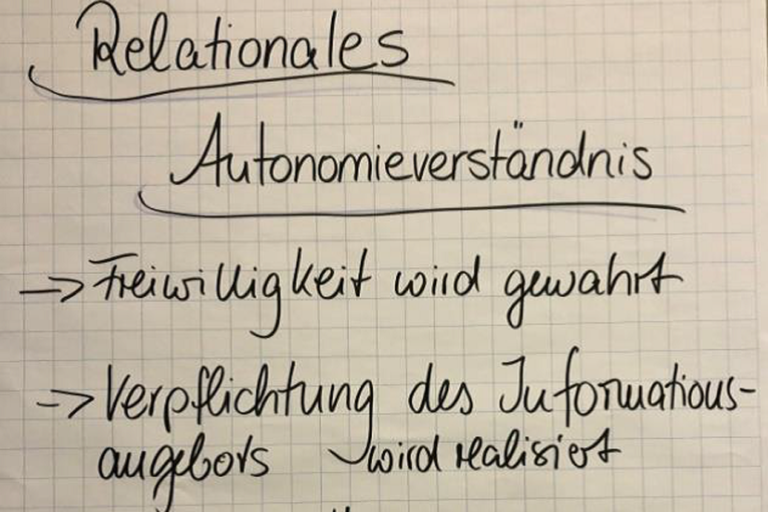 Relationales
Autonomieverständnis
-> Freiwilligkeit wird gewahrt
-> Verpflichtung des Informations-
angebots wird realisiert